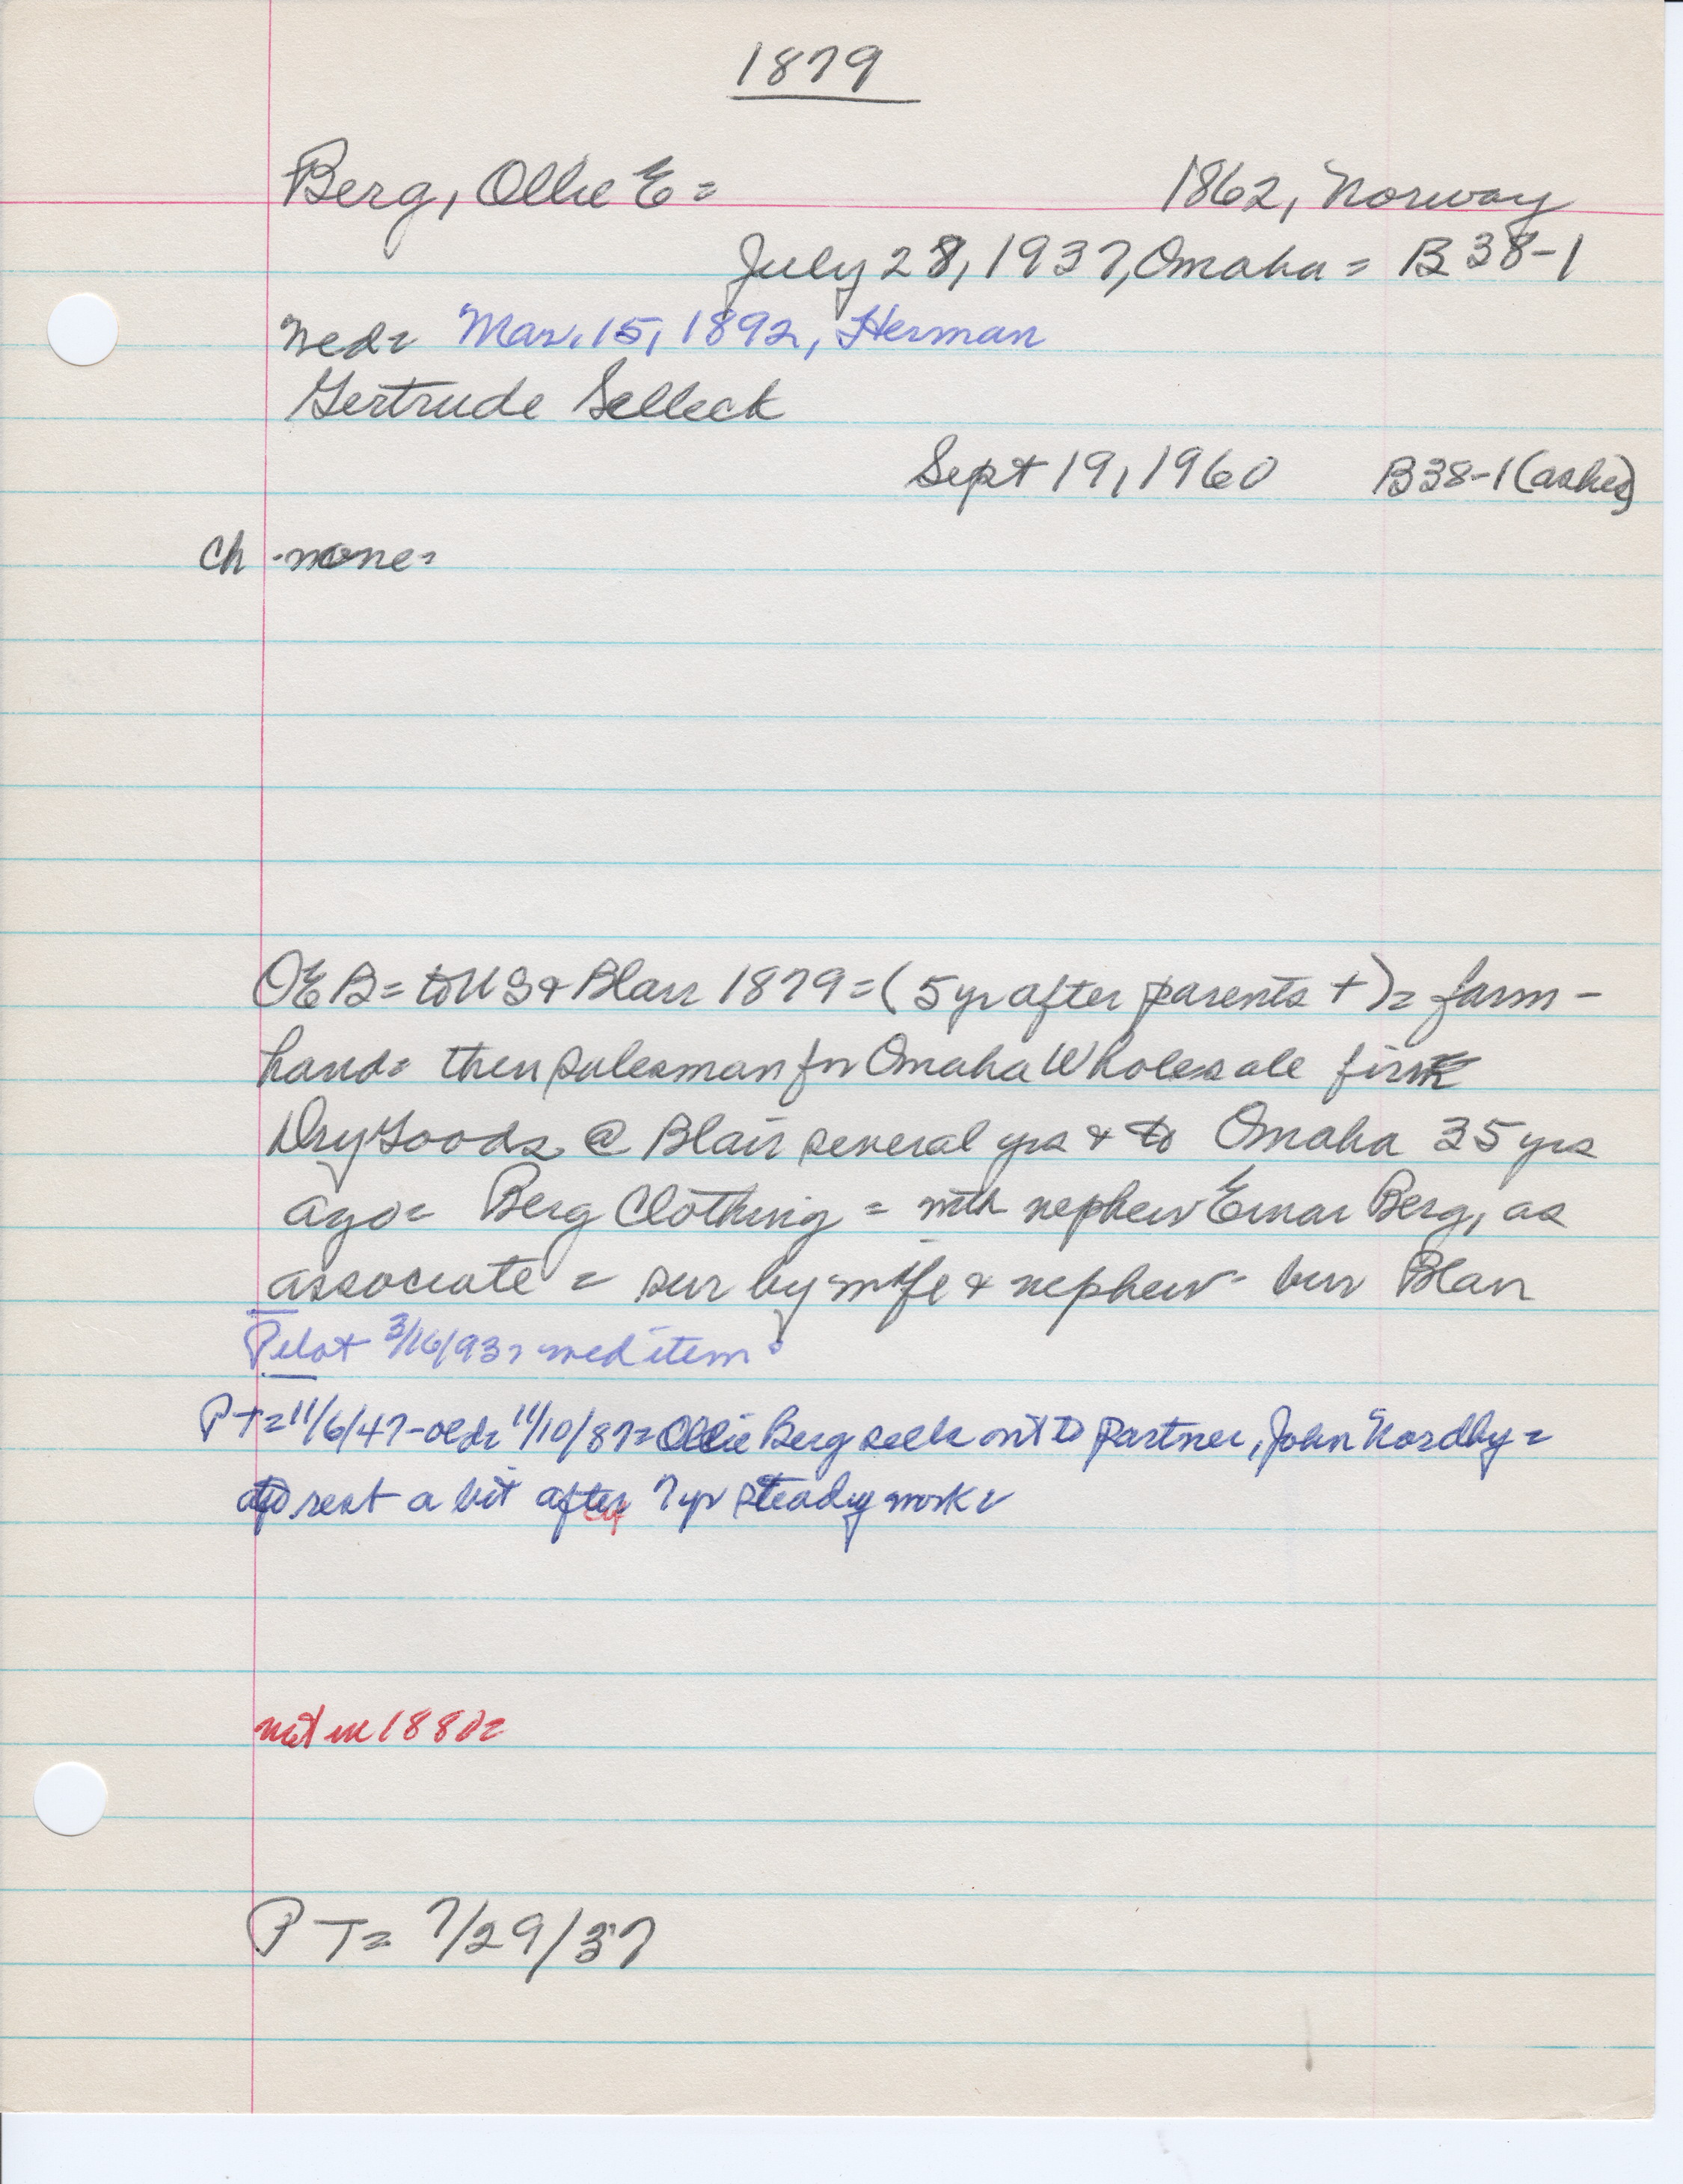 1879
Berg, Ollie E = 1862, Norway
July 28, 1937, Omaha = B 38-1
Wed = Mar. 15, 1892, Herman
Gertrude Selleck
Sept 19, 1960 B38-1 (ashes)
Ch - none =
OEB = to US & Blair 1879 = (5 yr after parents +) = farm -
hand = then salesman for Omaha Wholesale firm
Dry Goods @ Blair several yrs & to Omaha 35 yrs
ago = Berg Clothing = with nephew Einar Berg, as
associate = sur by wife & nephew - bur Blair
Pilot 3/16/93 = wed item
PT = 11/6/47 - old = 11/10/87 = Ollie Berg sells out to partner, John Nordby =
to rest a bit after 7 yr steady work =
not in 1880 =
PT = 7/29/37